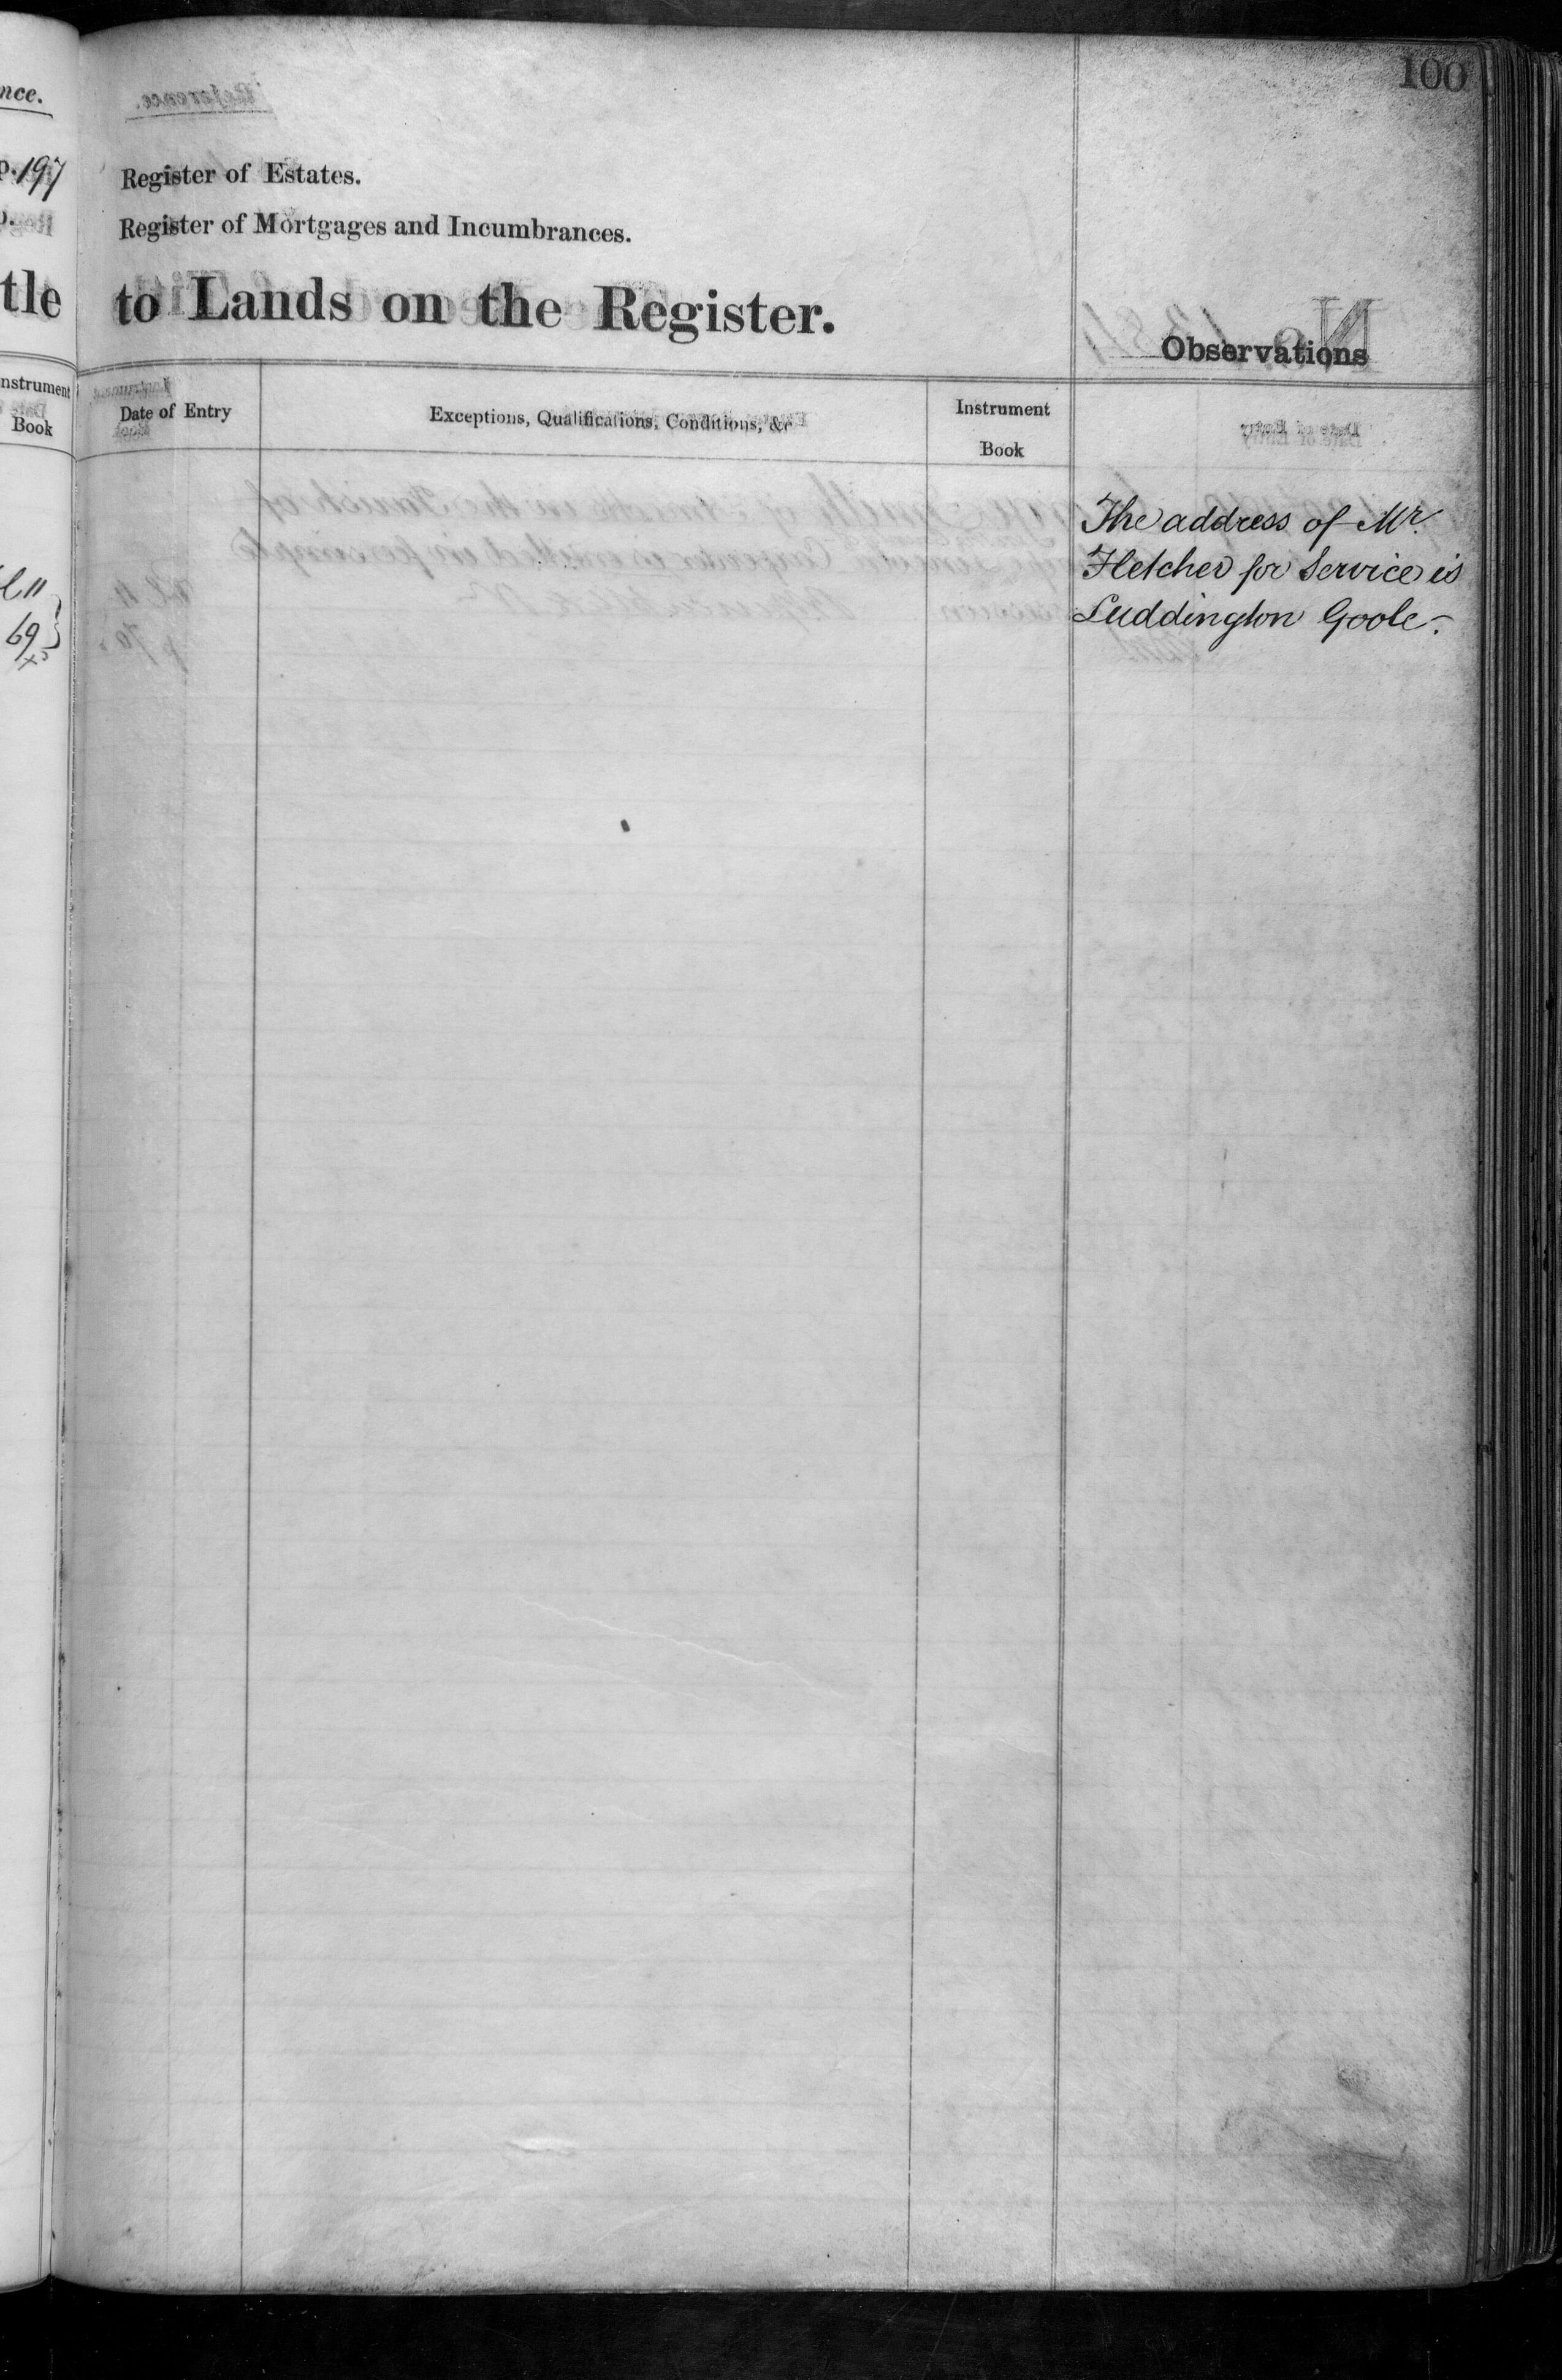 100
nce.
p. 197
p.
tle
Instrument
Book
69
Register of Estates.
Register of Mortgages and Incumbrances.
to Lands on the Register.
Observations
Date of Entry
Exceptions, Qualifications, Conditions, &c
Instrument
Book
The address of Mr.
Fletcher for Service is
Luddington Goole.